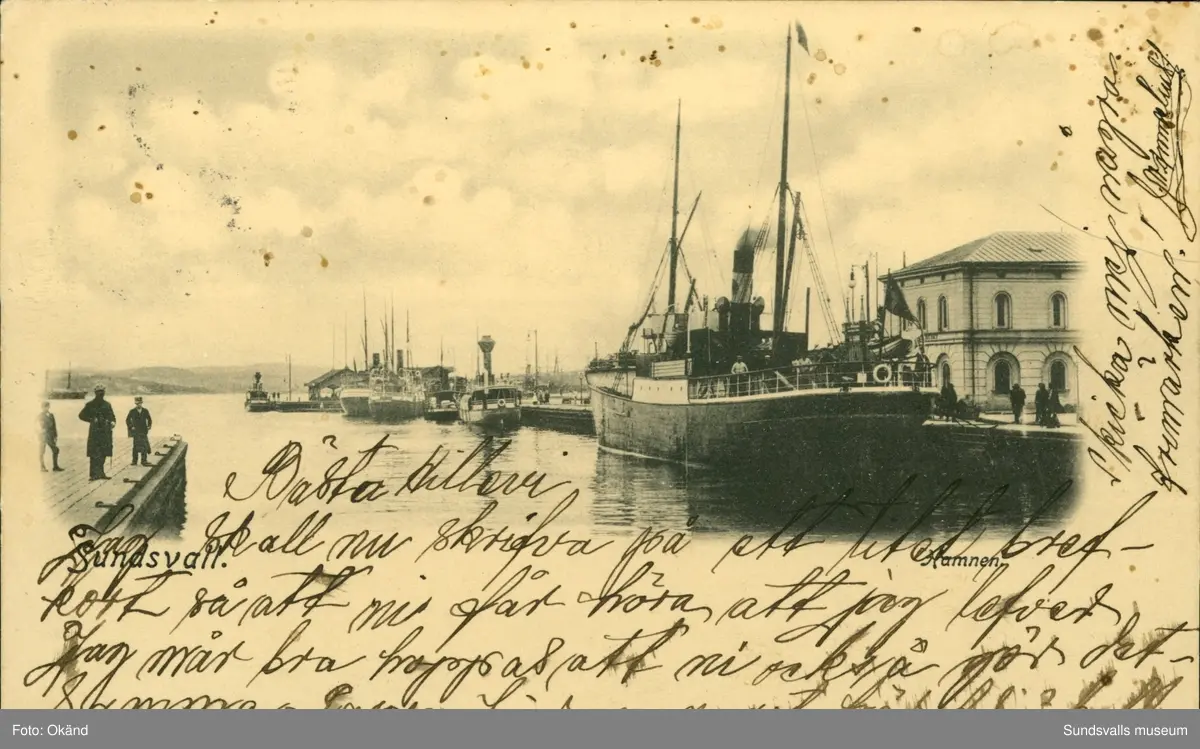 Bästa Hillevi
Jag skall nu skrifva på ett litet bref-
kort så att ni får höra att jag lefver
Jag mår bra hoppas att ni också gör det-
samma
Sundsvall.
Hamnen.
Skicka mig några
frimärken!
Foto: Okänd
Sundsvalls museum